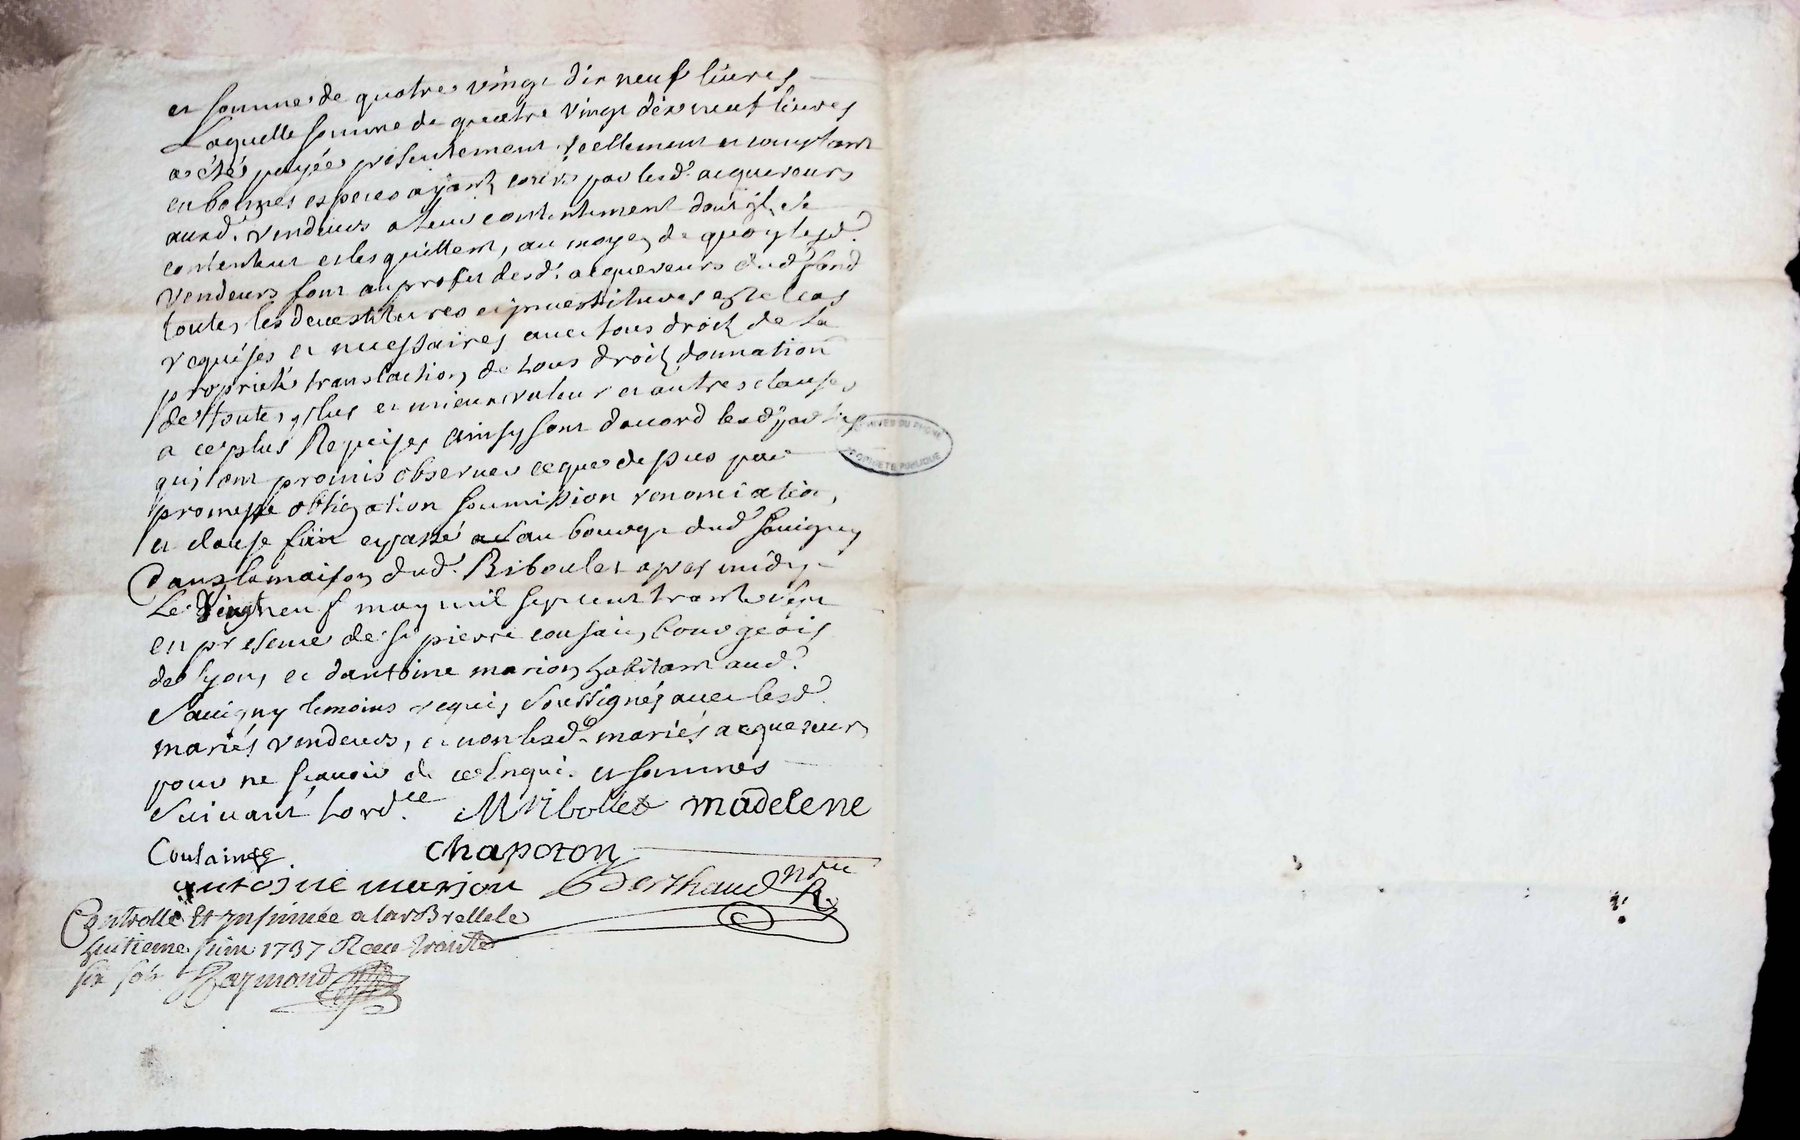 et somme de quatre vingt dix neuf livres
Laquelle somme de quatre vingt dix neuf livres
a étés payée présentement réellement et comptant
en bonnes especes ayant cours par lesd. acquereurs
auxd. vendeurs a leur contentement dont ils se
contentent et les quittent, au moyen de quoy lesd.
vendeurs font au profit desd. acquereurs dud. fond
toutes les devestitures et investitures en tel cas
requises et necessaires avec tous droits de la
proprieté translation de tous droits donnation
de toutes plus et mieux valeur et autres clauses
a ce plus Requises ainsy sont d'accord lesd. parties
qui ont promis observer ce que dessus par
promesse obligation soumission renonciation
et clause fait et passé au bourg dud. Savigny
Dans la maison dud. Riboulet apres midy
Le Vingt neuf may mil sept cent trante sept
en presence de sr pierre cousain, bourgeois
de lyon, et d'antoine marion habitant aud.
Savigny temoins requis soussignés avec lesd.
mariés vendeurs, et non lesd. mariés acquereurs
pour ne scavoir de ce Enquis et sommés
Suivant l'ord.ce M Ribollet madelene
Coulain chapoton
antoine marion Berthaud nore R.
Controllé Et insinuée a larBrelle le
huitieme juin 1737 Receu trante
six sols Raymond
ARCHIVES DU RHONE
PROPRIETE PUBLIQUE